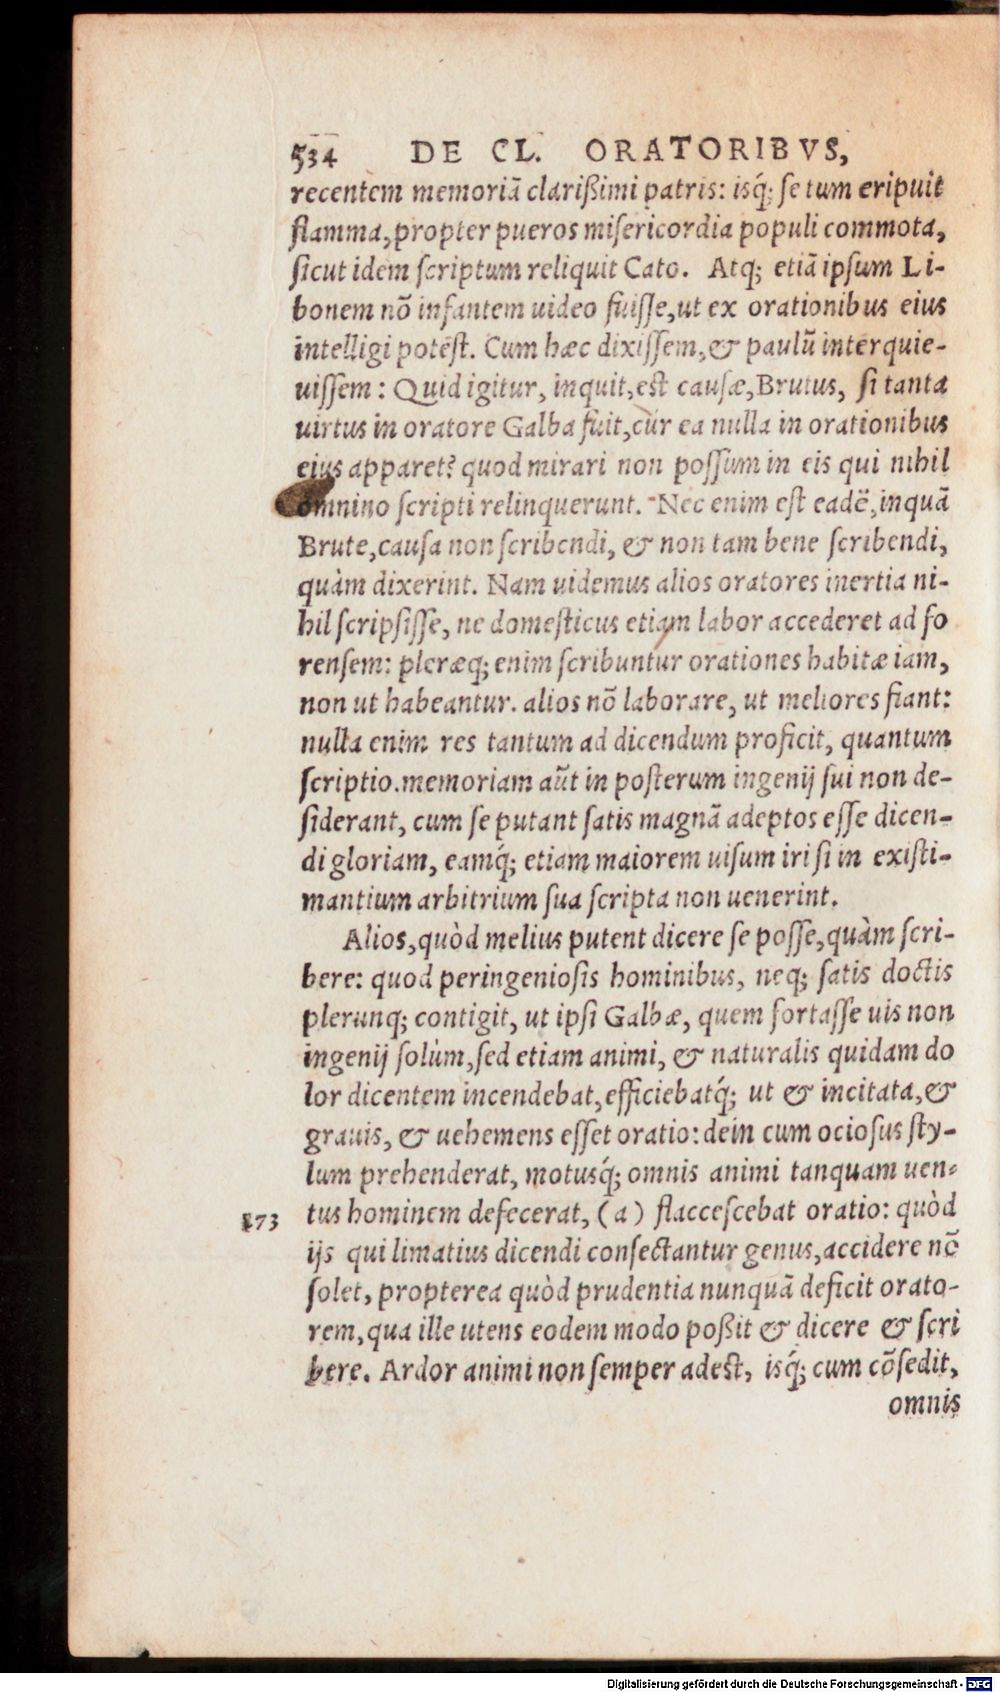 534 DE CL. ORATORIBVS,
recentem memoriã clarißimi patris: isq́; ſe tum eripuit
flamma, propter pueros miſericordia populi commota,
ſicut idem ſcriptum reliquit Cato. Atq; etiã ipſum Li-
bonem nõ infantem uideo fuiſſe, ut ex orationibus eius
intelligi poteſt. Cum hæc dixiſſem, & paulũ interquie-
uiſſem: Quid igitur, inquit, eſt cauſæ, Brutus, ſi tanta
uirtus in oratore Galba fuit, cur ea nulla in orationibus
eius apparet? quod mirari non poſſum in eis qui nihil
omnino ſcripti relinquerunt. Nec enim eſt eadẽ, inquã
Brute, cauſa non ſcribendi, & non tam bene ſcribendi,
quàm dixerint. Nam uidemus alios oratores inertia ni-
hil ſcripſiſſe, ne domeſticus etiam labor accederet ad fo
renſem: pleræq; enim ſcribuntur orationes habitæ iam,
non ut habeantur. alios nõ laborare, ut meliores fiant:
nulla enim res tantum ad dicendum proficit, quantum
ſcriptio. memoriam aũt in poſterum ingenij ſui non de-
ſiderant, cum ſe putant ſatis magnã adeptos eſſe dicen-
di gloriam, eamq́; etiam maiorem uiſum iri ſi in exiſti-
mantium arbitrium ſua ſcripta non uenerint.
Alios, quòd melius putent dicere ſe poſſe, quàm ſcri-
bere: quod peringenioſis hominibus, neq; ſatis doctis
plerunq; contigit, ut ipſi Galbæ, quem fortaſſe uis non
ingenij ſolùm, ſed etiam animi, & naturalis quidam do
lor dicentem incendebat, efficiebatq́; ut & incitata, &
grauis, & uehemens eſſet oratio: dein cum ocioſus ſty-
lum prehenderat, motusq́; omnis animi tanquam uen-
273 tus hominem defecerat, (a) flacceſcebat oratio: quòd
ijs qui limatius dicendi conſectantur genus, accidere nõ
ſolet, propterea quòd prudentia nunquã deficit orato-
rem, qua ille utens eodem modo poßit & dicere & ſcri
bere. Ardor animi non ſemper adeſt, isq́; cum cõſedit,
omnis
Digitalisierung gefördert durch die Deutsche Forschungsgemeinschaft - DFG